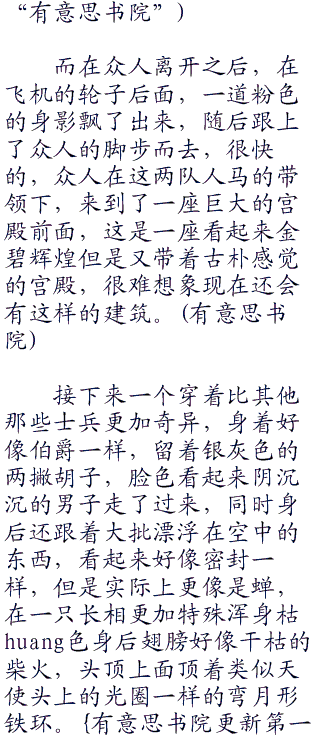 “有意思书院”)
而在众人离开之后，在
飞机的轮子后面，一道粉色
的身影飘了出来，随后跟上
了众人的脚步而去，很快
的，众人在这两队人马的带
领下，来到了一座巨大的宫
殿前面，这是一座看起来金
碧辉煌但是又带着古朴感觉
的宫殿，很难想象现在还会
有这样的建筑。(有意思书
院)
接下来一个穿着比其他
那些士兵更加奇异，身着好
像伯爵一样，留着银灰色的
两撇胡子，脸色看起来阴沉
沉的男子走了过来，同时身
后还跟着大批漂浮在空中的
东西，看起来好像密封一
样，但是实际上更像是蝉，
在一只长相更加特殊浑身枯
huang色身后翅膀好像干枯的
柴火，头顶上面顶着类似天
使头上的光圈一样的弯月形
铁环。{有意思书院更新第一